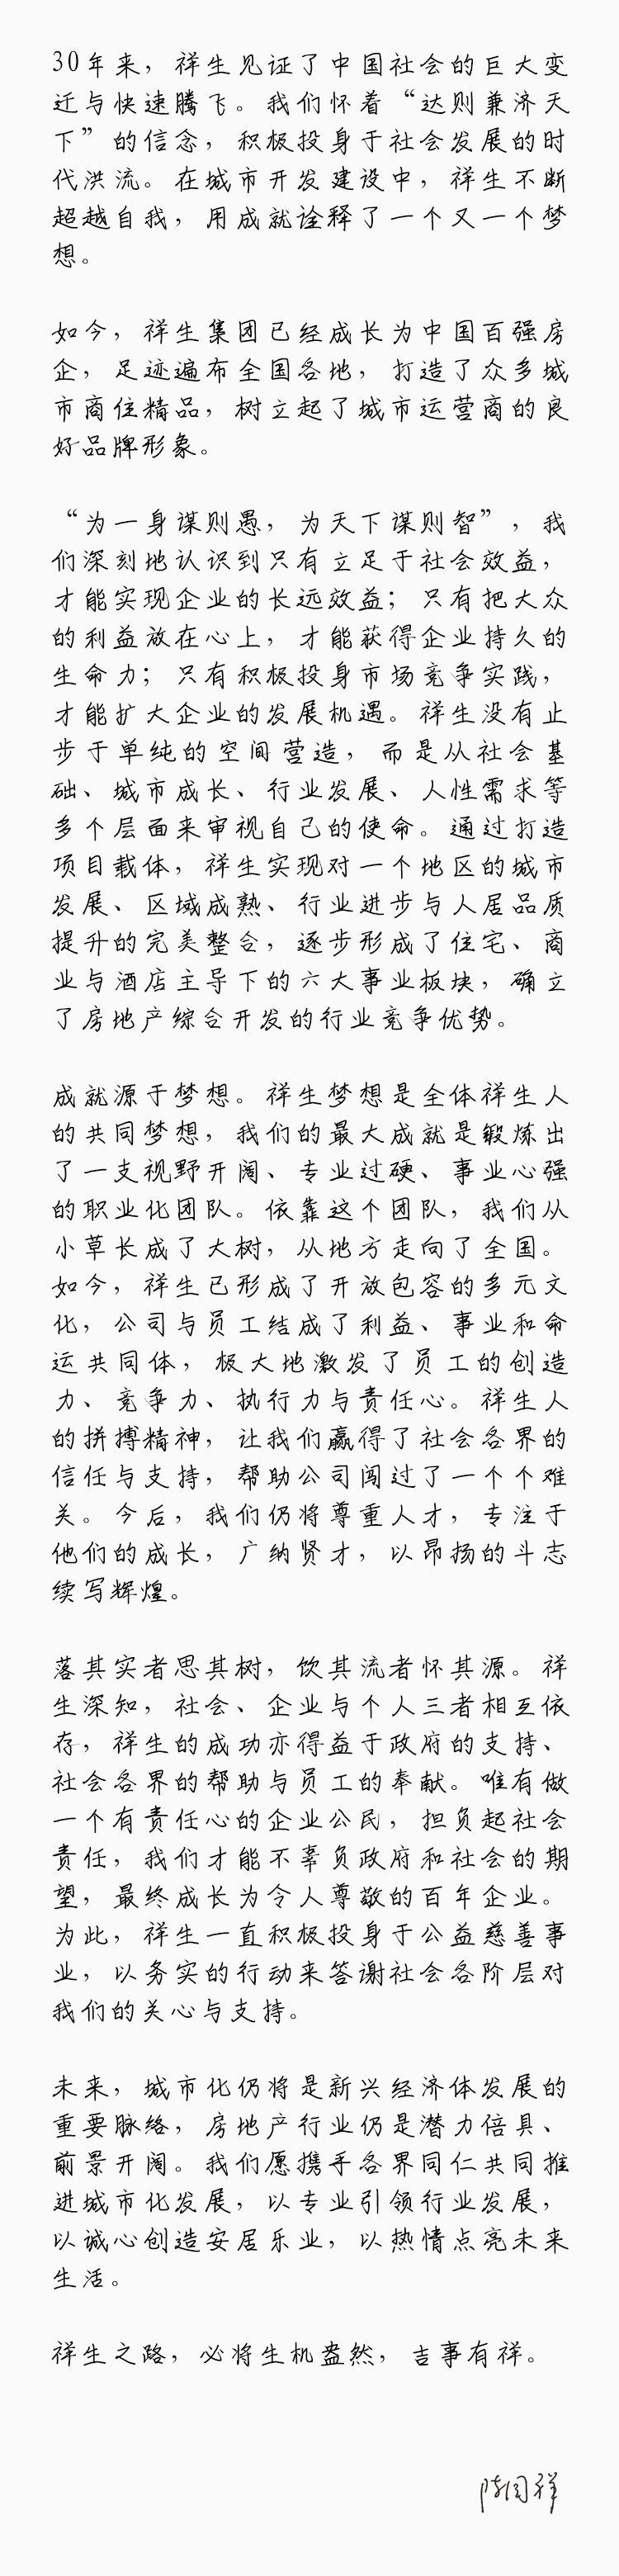 30年来，祥生见证了中国社会的巨大变
迁与快速腾飞。我们怀着“达则兼济天
下”的信念，积极投身于社会发展的时
代洪流。在城市开发建设中，祥生不断
超越自我，用成就诠释了一个又一个梦
想。
如今，祥生集团已经成长为中国百强房
企，足迹遍布全国各地，打造了众多城
市商住精品，树立起了城市运营商的良
好品牌形象。
“为一身谋则愚，为天下谋则智”，我
们深刻地认识到只有立足于社会效益，
才能实现企业的长远效益；只有把大众
的利益放在心上，才能获得企业持久的
生命力；只有积极投身市场竞争实践，
才能扩大企业的发展机遇。祥生没有止
步于单纯的空间营造，而是从社会基
础、城市成长、行业发展、人性需求等
多个层面来审视自己的使命。通过打造
项目载体，祥生实现对一个地区的城市
发展、区域成熟、行业进步与人居品质
提升的完美整合，逐步形成了住宅、商
业与酒店主导下的六大事业板块，确立
了房地产综合开发的行业竞争优势。
成就源于梦想。祥生梦想是全体祥生人
的共同梦想，我们的最大成就是锻炼出
了一支视野开阔、专业过硬、事业心强
的职业化团队。依靠这个团队，我们从
小草长成了大树，从地方走向了全国。
如今，祥生已形成了开放包容的多元文
化，公司与员工结成了利益、事业和命
运共同体，极大地激发了员工的创造
力、竞争力、执行力与责任心。祥生人
的拼搏精神，让我们赢得了社会各界的
信任与支持，帮助公司闯过了一个个难
关。今后，我们仍将尊重人才，专注于
他们的成长，广纳贤才，以昂扬的斗志
续写辉煌。
落其实者思其树，饮其流者怀其源。祥
生深知，社会、企业与个人三者相互依
存，祥生的成功亦得益于政府的支持、
社会各界的帮助与员工的奉献。唯有做
一个有责任心的企业公民，担负起社会
责任，我们才能不辜负政府和社会的期
望，最终成长为令人尊敬的百年企业。
为此，祥生一直积极投身于公益慈善事
业，以务实的行动来答谢社会各阶层对
我们的关心与支持。
未来，城市化仍将是新兴经济体发展的
重要脉络，房地产行业仍是潜力倍具、
前景开阔。我们愿携手各界同仁共同推
进城市化发展，以专业引领行业发展，
以诚心创造安居乐业，以热情点亮未来
生活。
祥生之路，必将生机盎然，吉事有祥。
陈国祥